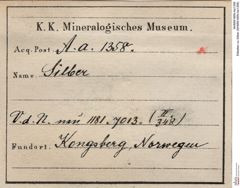 K. K. Mineralogisches Museum.
Acq. Post. A. a. 1358.
Name Silber
V. d. N. 1181. 7013.
Fundort. Kongsberg, Norwegen